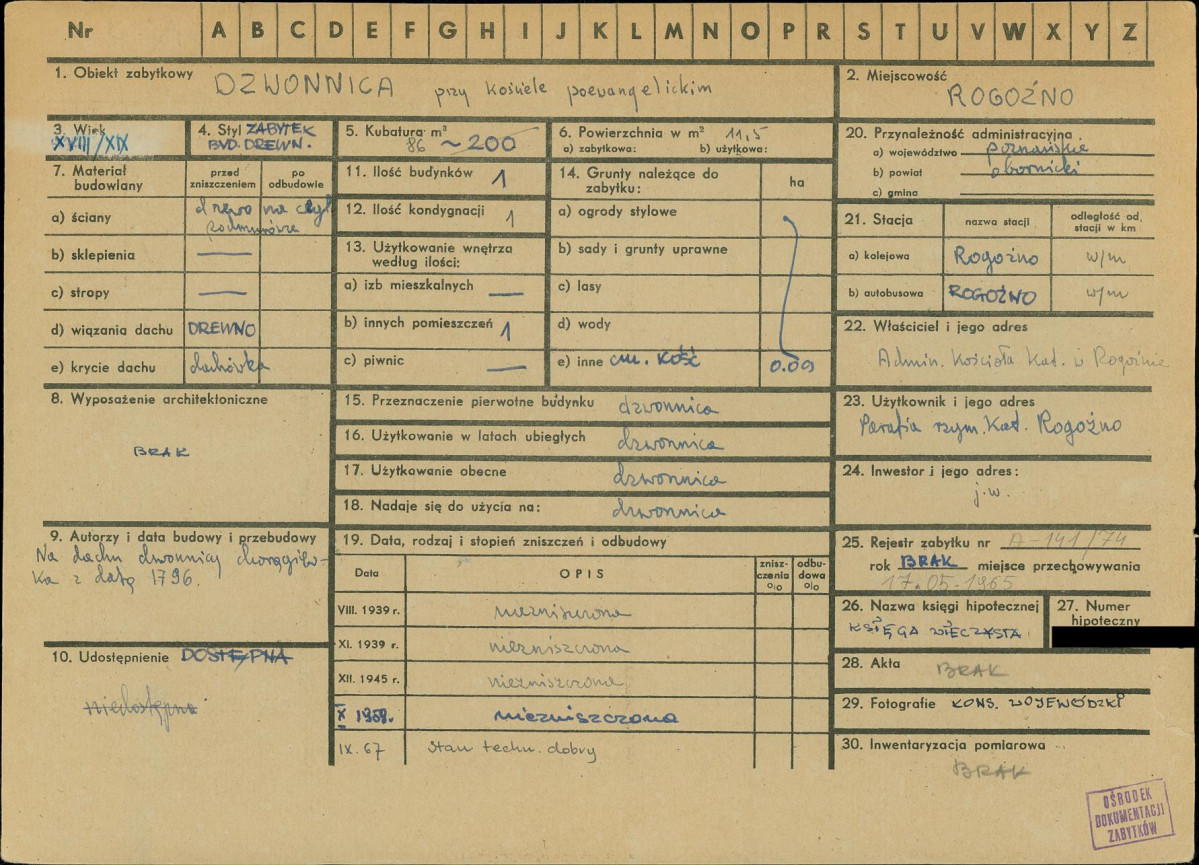 Nr A B C D E F G H I J K L M N O P R S T U V W X Y Z
1. Obiekt zabytkowy DZWONNICA przy kościele poewangelickim
2. Miejscowość
ROGOŹNO
3. Wiek
XVIII/XIX
4. Styl ZABYTEK
BUD. DREWN.
5. Kubatura m³
86 ~200
6. Powierzchnia w m² 11,5
a) zabytkowa: b) użytkowa:
7. Materiał
budowlany
przed
zniszczeniem
po
odbudowie
a) ściany drewno na
podmurówce
b) sklepienia —
c) stropy —
d) wiązania dachu DREWNO
e) krycie dachu dachówka
8. Wyposażenie architektoniczne
BRAK
9. Autorzy i data budowy i przebudowy
Na dachu dzwonnicy chorągiew-
ka z datą 1796.
10. Udostępnienie DOSTĘPNA
niedostępna
11. Ilość budynków 1
12. Ilość kondygnacji 1
13. Użytkowanie wnętrza
według ilości:
a) izb mieszkalnych —
b) innych pomieszczeń 1
c) piwnic —
14. Grunty należące do
zabytku:
ha
a) ogrody stylowe
b) sady i grunty uprawne
c) lasy
d) wody
e) inne cm. KOŚĆ 0.09
15. Przeznaczenie pierwotne budynku dzwonnica
16. Użytkowanie w latach ubiegłych dzwonnica
17. Użytkowanie obecne dzwonnica
18. Nadaje się do użycia na: dzwonnica
19. Data, rodzaj i stopień zniszczeń i odbudowy
Data OPIS
znisz-
czenia
%
odbu-
dowa
%
VIII. 1939 r. niezniszczona
XI. 1939 r. niezniszczona
XII. 1945 r. niezniszczona
X 1959r. niezniszczona
IX. 67 Stan techn. dobry
20. Przynależność administracyjna
a) województwo poznańskie
b) powiat obornicki
c) gmina
21. Stacja nazwa stacji
odległość od
stacji w km
a) kolejowa Rogoźno w/m
b) autobusowa ROGOŹNO w/m
22. Właściciel i jego adres
Admin. Kościoła Kat. w Rogoźnie
23. Użytkownik i jego adres
Parafia rzym. Kat. Rogoźno
24. Inwestor i jego adres:
j.w.
25. Rejestr zabytku nr A-141/74
rok BRAK miejsce przechowywania
17.05-1965
26. Nazwa księgi hipotecznej
KSIĘGA WIECZYSTA
27. Numer
hipoteczny
28. Akta BRAK
29. Fotografie KONS. WOJEWÓDZKI
30. Inwentaryzacja pomiarowa
BRAK
OŚRODEK
DOKUMENTACJI
ZABYTKÓW